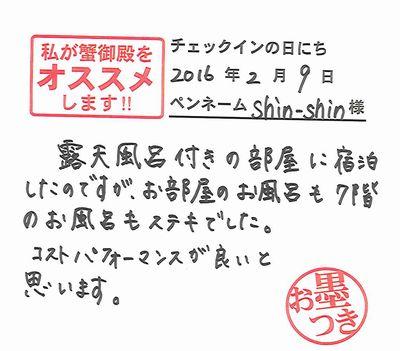 私が蟹御殿を
オススメ
します!!
チェックインの日にち
2016 年 2 月 9 日
ペンネーム shin-shin 様
露天風呂付きの部屋に宿泊
したのですが、お部屋のお風呂も 7階
のお風呂もステキでした。
コストパフォーマンスが良いと
思います。
お墨つき